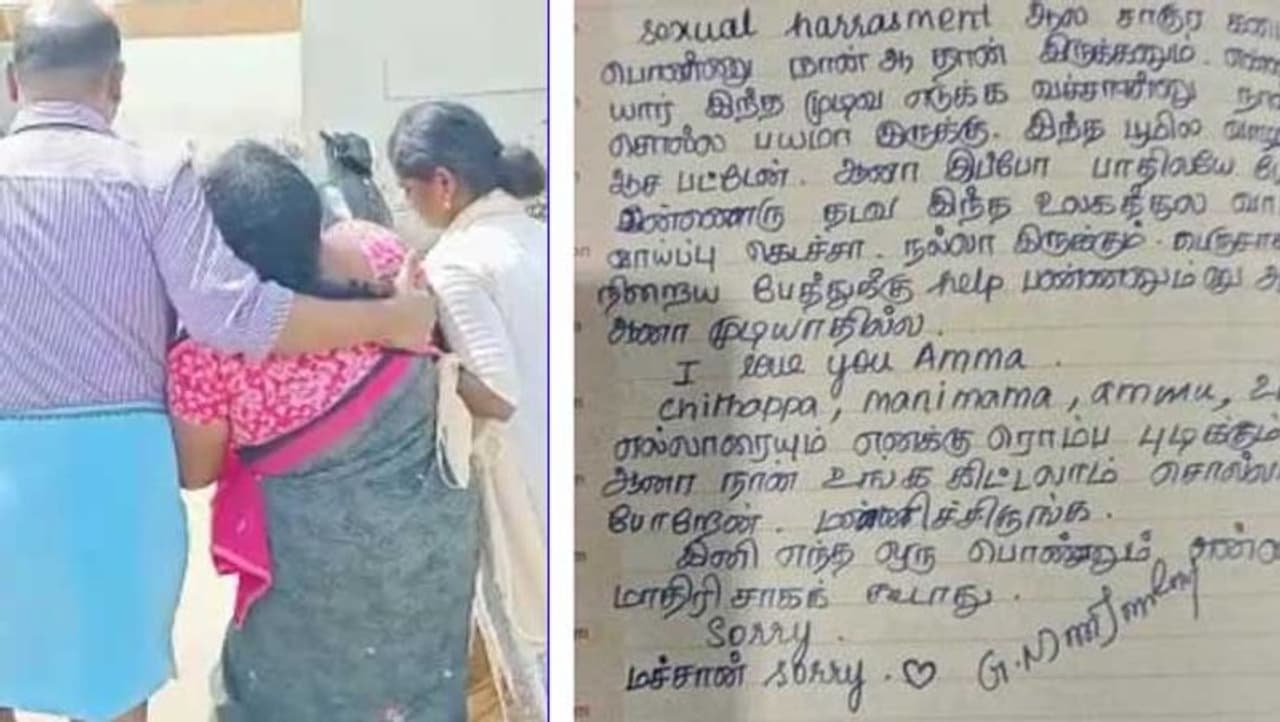 sexual harrasment ஆல சாகுற
பொண்ணு நான் ஆ தான் இருக்கணும்.
யார் இந்த முடிவ எடுக்க வச்சான்னு
சொல்ல பயமா இருக்கு. இந்த பூமில
ஆச பட்டேன். ஆனா இப்போ பாதிலயே
இன்னொரு தடவ இந்த உலகத்துல
வாய்ப்பு கெடச்சா. நல்லா இருக்கும்.
நிறைய பேத்துக்கு help பண்ணனும்னு
ஆனா முடியாதில்ல.
I love you Amma.
chithappa, manimama, ammu,
எல்லாரையும் எனக்கு ரொம்ப புடிக்கும்
ஆனா நான் உங்க கிட்டலாம்
போறேன். மன்னிச்சிருங்க.
இனி எந்த ஒரு பொண்ணும்
மாதிரி சாகக் கூடாது.
Sorry.
மச்சான் sorry. ♡